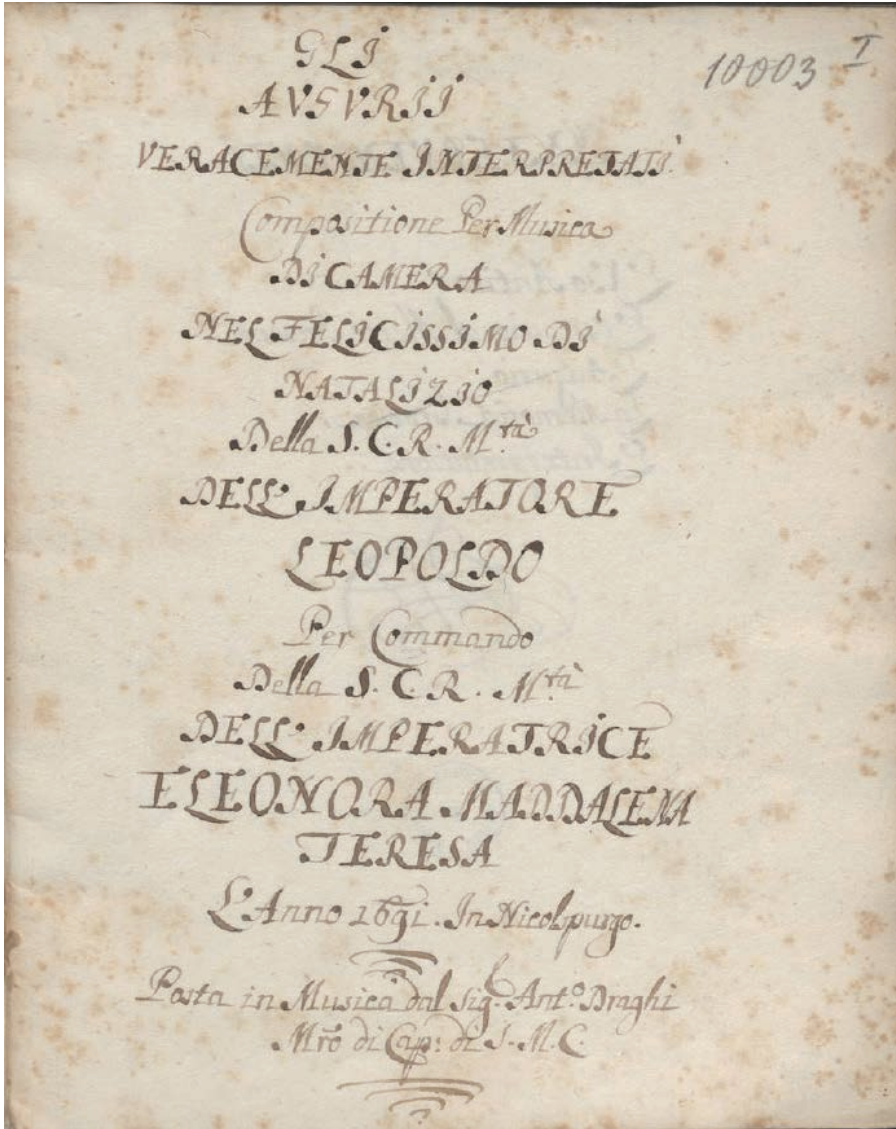 10003 I
GLI
AVGVRII
VERACEMENTE INTERPRETATI.
Compositione Per Musica
DI CAMERA
NEL FELICISSIMO DI
NATALIZIO
Della S. C. R. M.tà
DELL' IMPERATORE
LEOPOLDO
Per Commando
Della S. C. R. M.tà
DELL' IMPERATRICE
ELEONORA MADDALENA
TERESA
L'Anno 1691. In Nicolspurgo.
Posta in Musica dal Sig.r Ant.o Draghi
Mro di Cap: di S. M. C.